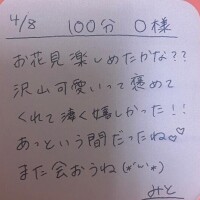 4/8 100分 O様
お花見楽しめたかな??
沢山可愛いって褒めて
くれて凄く嬉しかった!!
あっという間だったね♡♡
また会おうね(*'ω'*)
みと